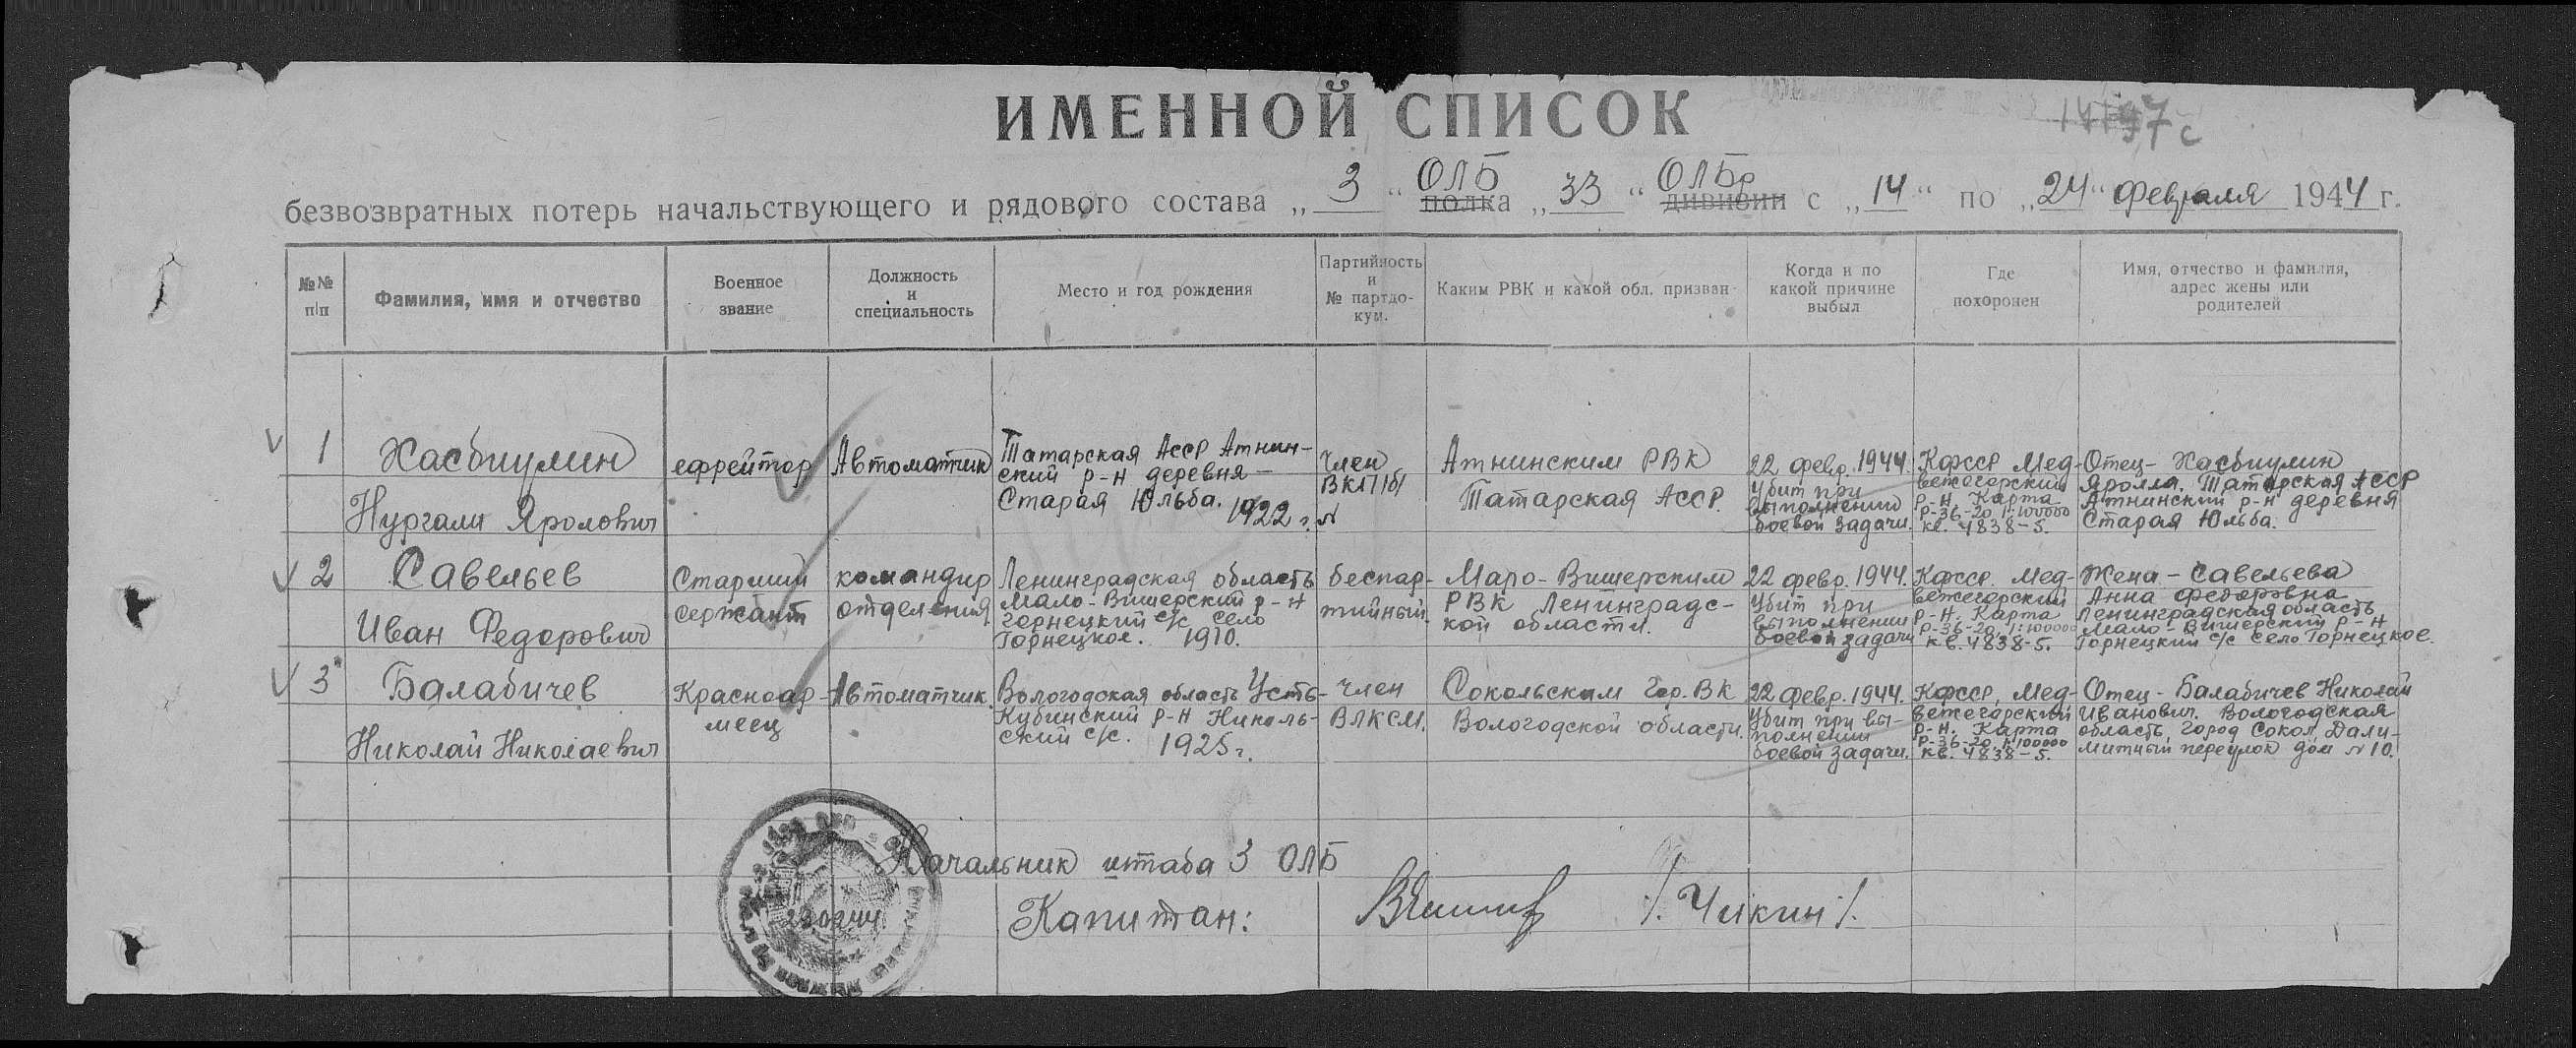 ИМЕННОЙ СПИСОК
14197с
безвозвратных потерь начальствующего и рядового состава „ 3 “ ОЛБ полка „ 33 “ ОЛБр дивизии с „ 14 “ по „ 24 “ февраля 1944 г.
№№ п|п
Фамилия, имя и отчество
Военное
звание
Должность
и
специальность
Место и год рождения
Партийность
и
№ партдо-
кум.
Каким РВК и какой обл. призван
Когда и по
какой причине
выбыл
Где
похоронен
Имя, отчество и фамилия,
адрес жены или
родителей
1
Хасбиулин
Нургали Яролович
ефрейтор
Автоматчик
Татарская АССР Атнин-
ский р-н деревня
Старая Юльба.
1922 г.
Член
ВКП/б/
N
Атнинским РВК
Татарская АССР.
22 февр. 1944.
Убит при
выполнении
боевой задачи.
КФССР Мед-
вежегорский
р-н. Карта
Р-36-20 1:100000
кв. 4838-5.
Отец - Хасбиулин
Яролла, Татарская АССР
Атнинский р-н деревня
Старая Юльба.
2
Савельев
Иван Федорович
Старший
сержант
командир
отделения
Ленинградская область
Мало-Вишерский р-н
Горнецкий с/с село
Горнецкое. 1910.
беспар-
тийный.
Мало-Вишерским
РВК Ленинградс-
кой области.
22 февр. 1944.
Убит при
выполнении
боевой задачи
КФССР. Мед-
вежегорский
р-н. Карта
Р-36-20, 1:100000
кв. 4838-5.
Жена - Савельева
Анна Федоровна
Ленинградская область
Мало-Вишерский р-н
Горнецкий с/с село Горнецкое.
3
Балабичев
Николай Николаевич
Красноар-
меец
Автоматчик.
Вологодская область Усть-
Кубинский р-н Николь-
ский с/с. 1925 г.
Член
ВЛКСМ.
Сокольским Гор. ВК
Вологодской области.
22 февр. 1944.
Убит при вы-
полнении
боевой задачи.
КФССР, Мед-
вежегорский
р-н. Карта
Р-36-20, 1:100000
кв. 4838-5.
Отец - Балабичев Николай
Иванович. Вологодская
область, город Сокол, Дали-
митный переулок дом N 10.
Начальник штаба 3 ОЛБ
Капитан:
/. Чикин /.